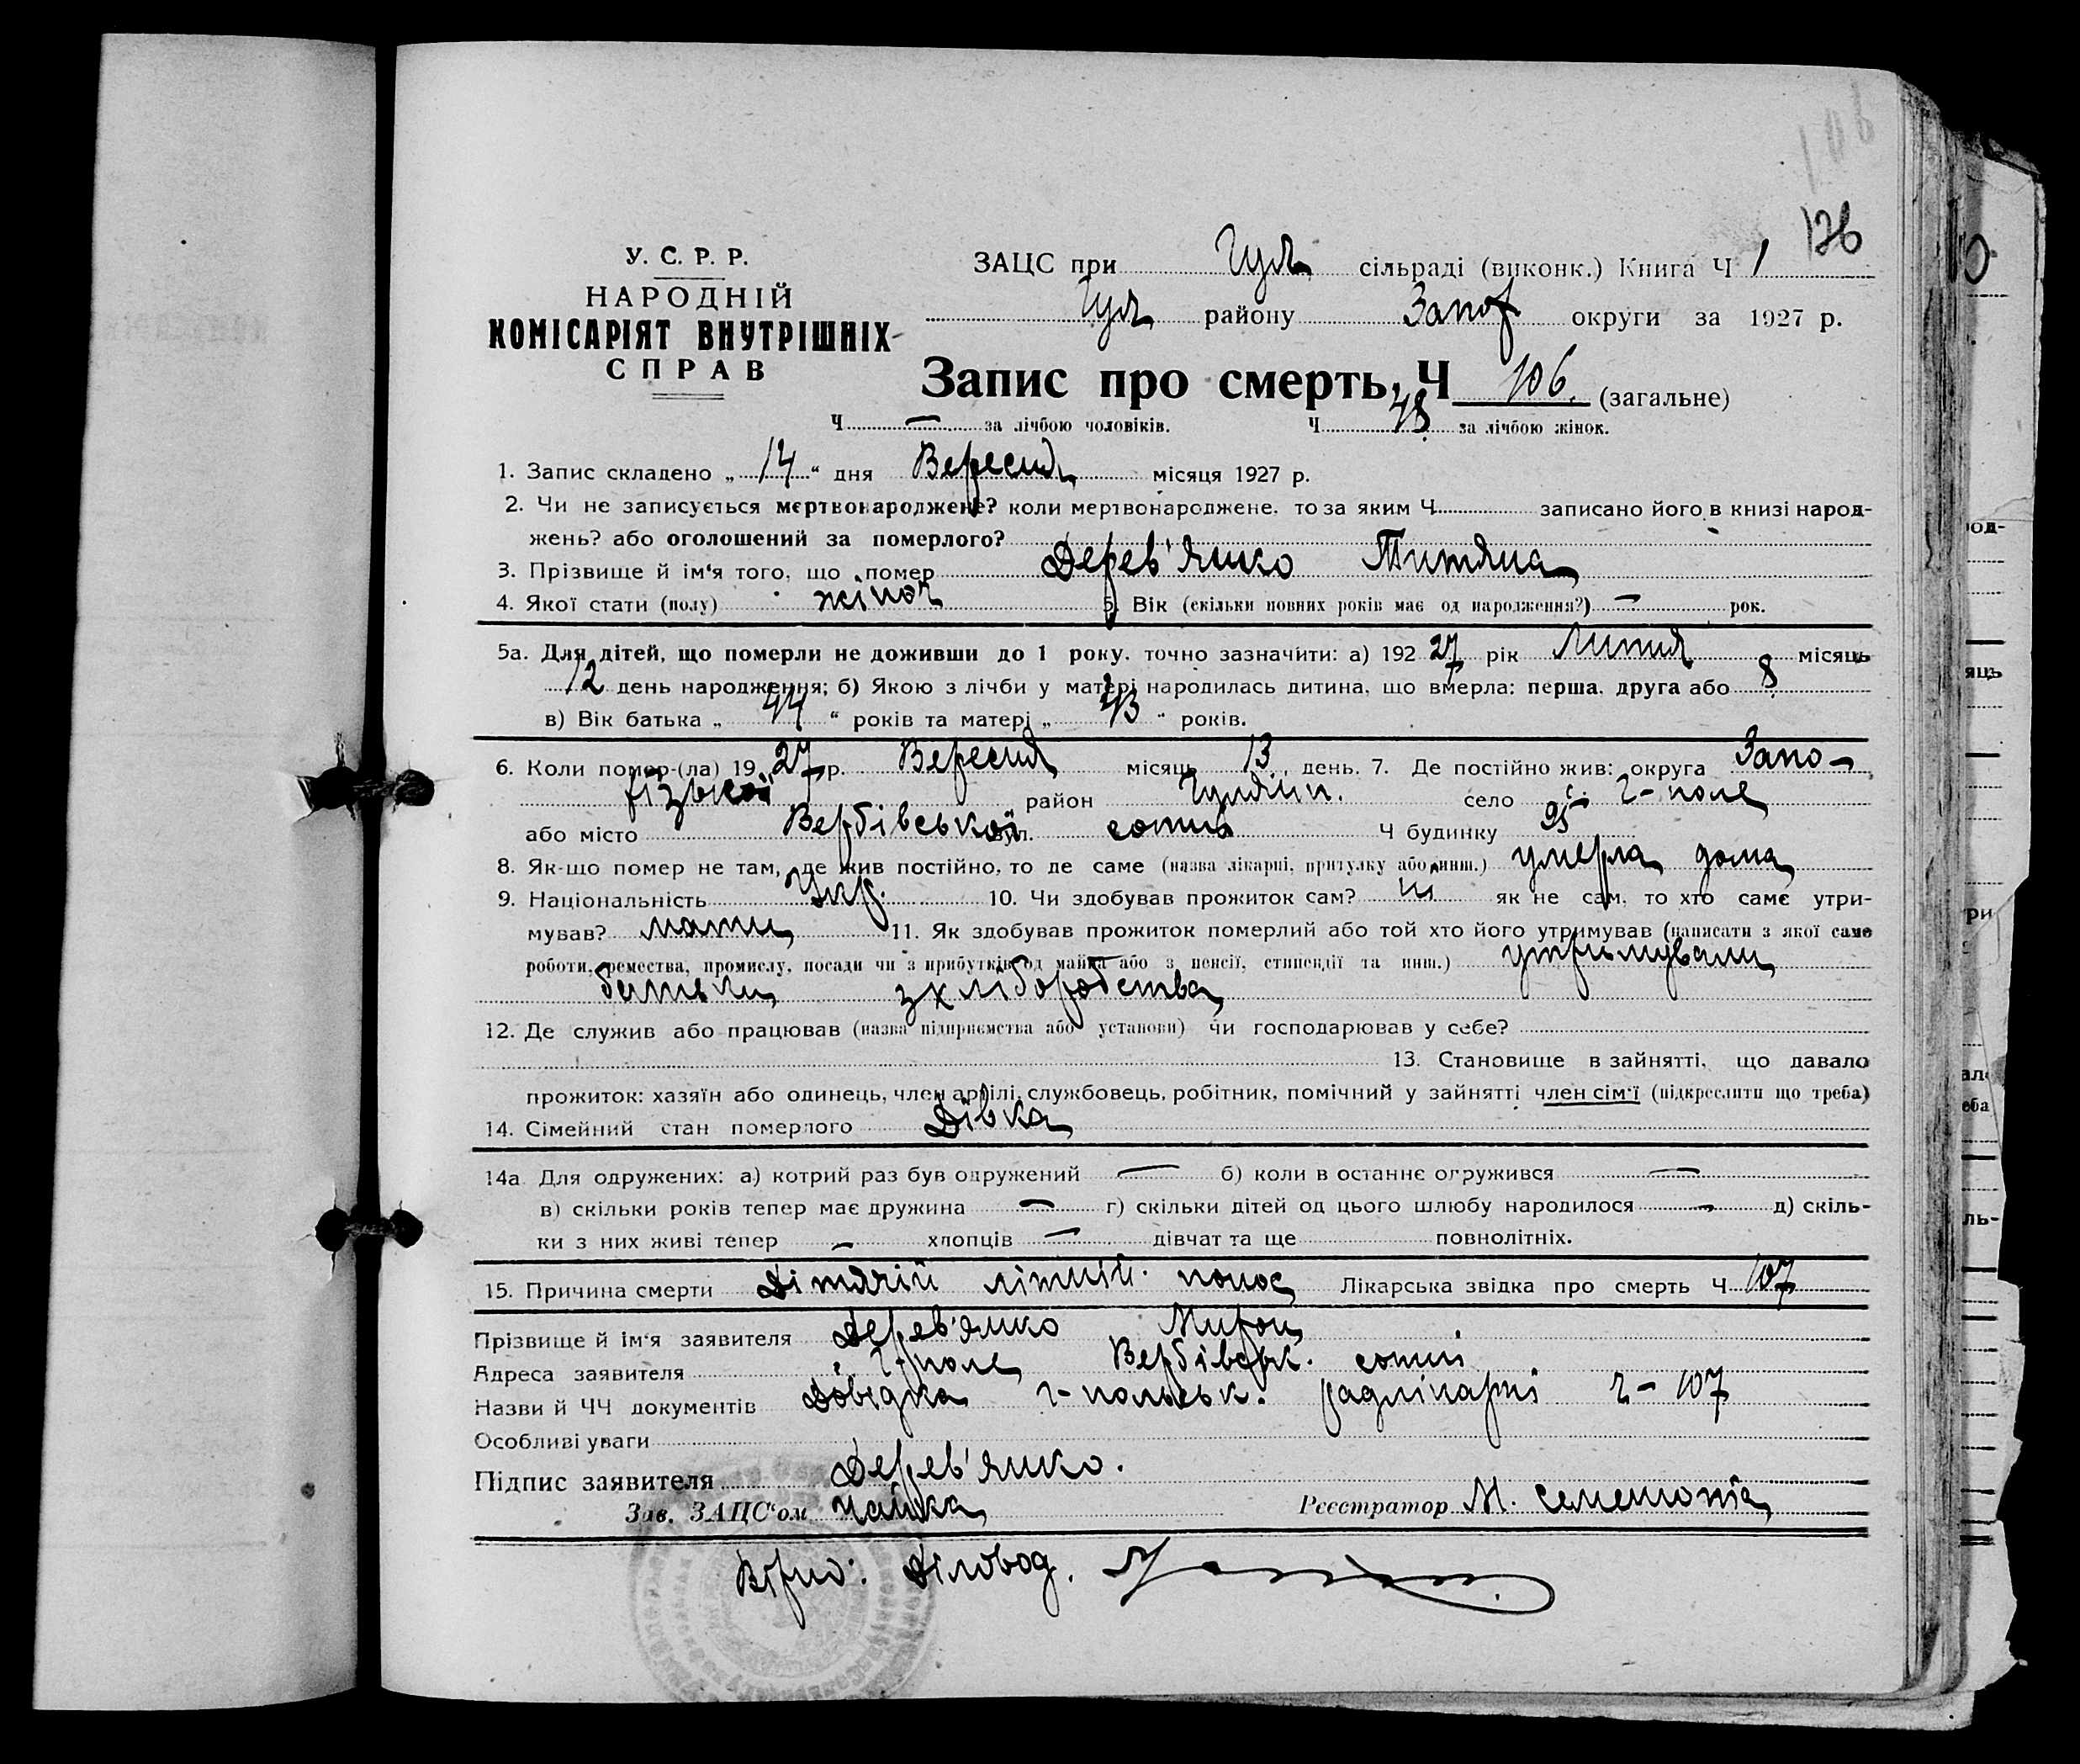 106
126
У. С. Р. Р.
НАРОДНІЙ
КОМІСАРІЯТ ВНУТРІШНІХ
СПРАВ
ЗАЦС при Гул сільраді (виконк.) Книга Ч 1
Гул району Запор округи за 1927 р.
Запис про смерть, Ч 106. (загальне)
Ч — за лічбою чоловіків. Ч 48 за лічбою жінок.
1. Запис складено „14“ дня Вересня місяця 1927 р.
2. Чи не записується мертвонароджене? коли мертвонароджене, то за яким Ч записано його в книзі народ-
жень? або оголошений за померлого?
3. Прізвище й ім'я того, що помер Дерев'янко Титяна
4. Якої стати (полу) жіноч 5. Вік (скільки повних років має од народження?) — рок.
5а. Для дітей, що померли не доживши до 1 року, точно зазначити: а) 192 27 рік Липня місяць
12 день народження; б) Якою з лічби у матері народилась дитина, що вмерла: перша, друга або 8
в) Вік батька „ 44 “ років та матері „ 43 “ років.
6. Коли помер-(ла) 19 27 р. Вересня місяць 13 день. 7. Де постійно жив: округа Запо-
різької район Гуляйп. село с. Г-поле
або місто Вербівської вул. сотня Ч будинку 95
8. Як-що помер не там, де жив постійно, то де саме (назва лікарні, притулку або инш.) умерла дома
9. Національність Укр. 10. Чи здобував прожиток сам? ні як не сам, то хто саме утри-
мував? мати 11. Як здобував прожиток померлий або той хто його утримував (написати з якої саме
роботи, ремества, промислу, посади чи з прибутків од майна або з пенсії, стипендії та инш.) утримували
батьки з хліборобства
12. Де служив або працював (назва підприємства або установи) чи господарював у себе?
13. Становище в зайнятті, що давало
прожиток: хазяїн або одинець, член артілі, службовець, робітник, помічний у зайнятті член сім'ї (підкреслити що треба)
14. Сімейний стан померлого Дівка
14а Для одружених: а) котрий раз був одружений — б) коли в останнє одружився —
в) скільки років тепер має дружина — г) скільки дітей од цього шлюбу народилося — д) скіль-
ки з них живі тепер — хлопців — дівчат та ще повнолітніх.
15. Причина смерти Дітячій літній понос Лікарська звідка про смерть Ч 107
Прізвище й ім'я заявителя Дерев'янко Мирон
Адреса заявителя с. Г-поле Вербівськ. сотні
Назви й ЧЧ документів Довідка Г-польськ. радлікарні Ч- 107
Особливі уваги
Підпис заявителя Дерев'янко.
Зав. ЗАЦС'ом Чайка Реєстратор М. Семенюта
Вірно: Діловод.